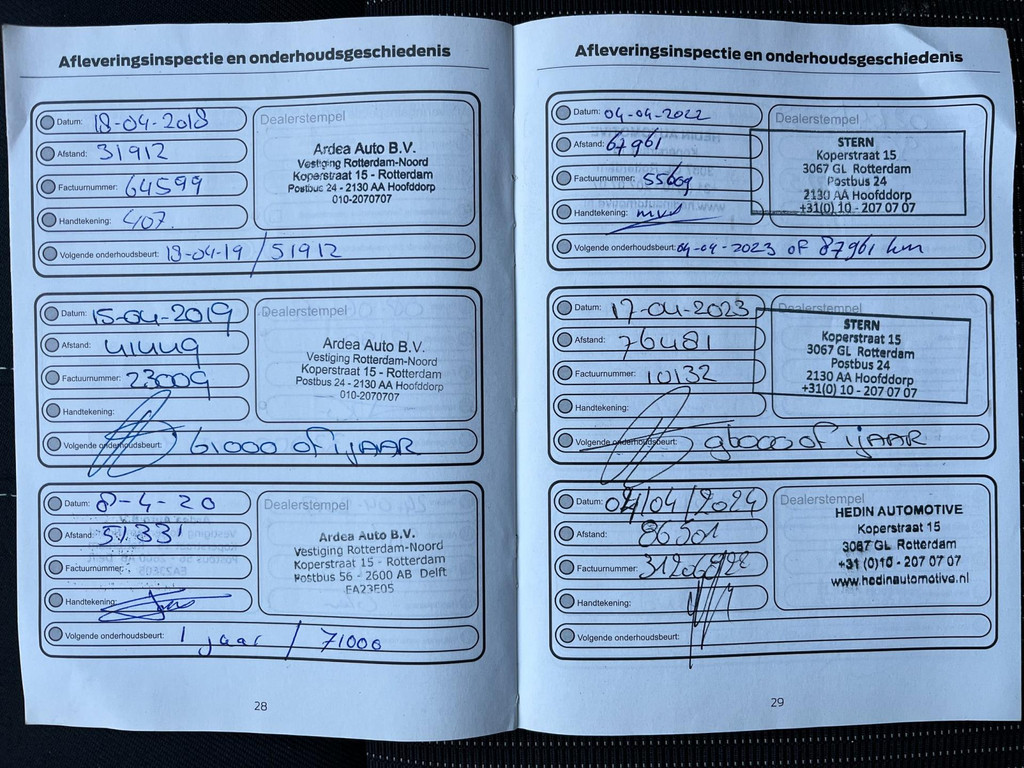 Afleveringsinspectie en onderhoudsgeschiedenis
Datum: 18-04-2018
Afstand: 31912
Factuurnummer: 64599
Handtekening: 407.
Volgende onderhoudsbeurt: 18-04-19 / 51912
Dealerstempel
Ardea Auto B.V.
Vestiging Rotterdam-Noord
Koperstraat 15 - Rotterdam
Postbus 24 - 2130 AA Hoofddorp
010-2070707
Datum: 15-04-2019
Afstand: 41449
Factuurnummer: 23009
Handtekening:
Volgende onderhoudsbeurt: 61000 of 1JAAR
Dealerstempel
Ardea Auto B.V.
Vestiging Rotterdam-Noord
Koperstraat 15 - Rotterdam
Postbus 24 - 2130 AA Hoofddorp
010-2070707
Datum: 8-4-20
Afstand: 51331
Factuurnummer:
Handtekening:
Volgende onderhoudsbeurt: 1 jaar / 71000
Dealerstempel
Ardea Auto B.V.
Vestiging Rotterdam-Noord
Koperstraat 15 - Rotterdam
Postbus 56 - 2600 AB Delft
EA23E05
28
Afleveringsinspectie en onderhoudsgeschiedenis
Datum: 04-04-2022
Afstand: 67961
Factuurnummer: 55609
Handtekening:
Volgende onderhoudsbeurt: 04-04-2023 of 87961 km
Dealerstempel
STERN
Koperstraat 15
3067 GL Rotterdam
Postbus 24
2130 AA Hoofddorp
+31(0) 10 - 207 07 07
Datum: 17-04-2023
Afstand: 76481
Factuurnummer: 10132
Handtekening:
Volgende onderhoudsbeurt: 96000 of 1JAAR
Dealerstempel
STERN
Koperstraat 15
3067 GL Rotterdam
Postbus 24
2130 AA Hoofddorp
+31(0) 10 - 207 07 07
Datum: 04/04/2024
Afstand: 86301
Factuurnummer:
Handtekening:
Volgende onderhoudsbeurt:
Dealerstempel
HEDIN AUTOMOTIVE
Koperstraat 15
3067 GL Rotterdam
+31 (0)10 - 207 07 07
www.hedinautomotive.nl
29